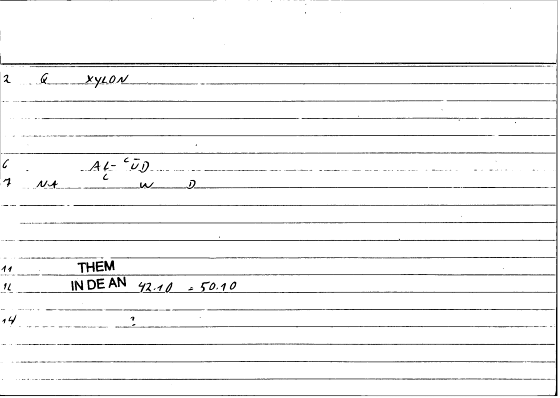 2 G XYLON
6 AL-ʿŪD
7 NA C W D
11 THEM
12 IN DE AN 42.10 = 50.10
14 ?